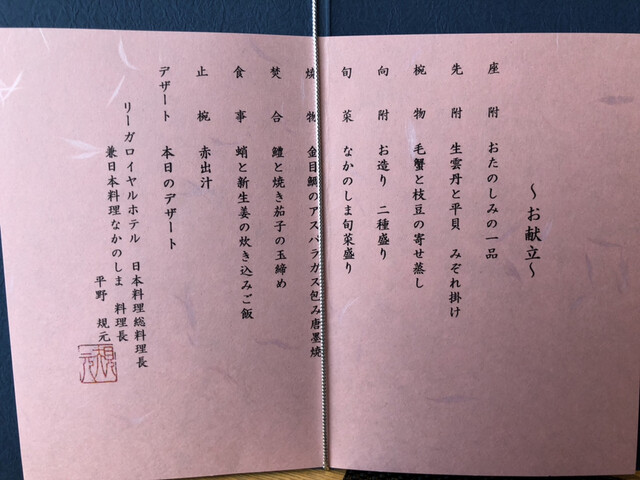 ～お献立～
座附 おたのしみの一品
先附 生雲丹と平貝 みぞれ掛け
椀物 毛蟹と枝豆の寄せ蒸し
向附 お造り 二種盛り
旬菜 なかのしま旬菜盛り
焼物 金目鯛のアスパラガス包み唐墨焼
焚合 鱧と焼き茄子の玉締め
食事 蛸と新生姜の炊き込みご飯
止椀 赤出汁
デザート 本日のデザート
リーガロイヤルホテル 日本料理総料理長
兼日本料理なかのしま 料理長
平野 規元